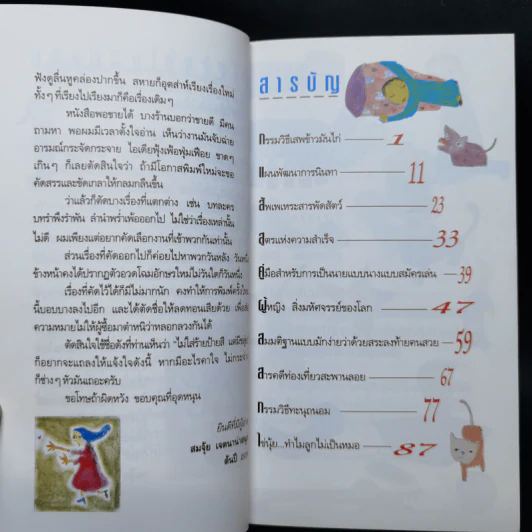 ฟังดูลื่นหูคล่องปากขึ้น สหายก็อุตส่าห์เรียงเรื่องใหม่
ทั้งๆ ที่เรียงไปเรียงมาก็คือเรื่องเดิมๆ
หนังสือพอขายได้ บางร้านบอกว่าขายดี มีคน
ถามหา พอผมมีเวลาตั้งใจอ่าน เห็นว่างานมันจับฉ่าย
อารมณ์กระจัดกระจาย ไอเดียฟุ้งเฟ้อฟุ่มเฟือย ขาดๆ
เกินๆ ก็เลยตัดสินใจว่า ถ้ามีโอกาสพิมพ์ใหม่จะขอ
คัดสรรและขัดเกลาให้กลมกลืนขึ้น
ว่าแล้วก็คัดบางเรื่องที่แตกต่าง เช่น บทละคร
บทรำพึงรำพัน ลำนำพร่ำเพ้อออกไป ไม่ใช่ว่าเรื่องเหล่านั้น
ไม่ดี ผมเพียงแต่อยากคัดเลือกงานที่เข้าพวกกันเท่านั้น
ส่วนเรื่องที่คัดออกไปก็ค่อยไปหาพวกวันหลัง วันหนึ่ง
ข้างหน้าคงได้ปรากฏตัวอวดโฉมอักษรใหม่ไม่วันใดก็วันหนึ่ง
เรื่องที่คัดไว้ได้ก็มีไม่มากนัก คงทำให้การพิมพ์ครั้ง
นี้บอบบางลงไปอีก และได้ตัดชื่อให้ลดทอนเสียด้วย เพื่อ
ความหมายไม่ให้ผู้ซื้อมาตำหนิว่าหลอกลวงกันได้
ตัดสินใจใช้ชื่อดังที่ท่านเห็นว่า "ไม่ใส่ร้ายป้ายสี แต่มี
ก็อยากจะแถลงให้แจ้งใจดังนี้ หากมีอะไรคาใจ ไม่กระจ่าง
ก็ช่างๆ หัวมันเถอะครับ
ขอโทษถ้าผิดหวัง ขอบคุณที่อุดหนุน
ยินดีที่มีผู้อ่าน
สมจุ้ย เจตนาน่าสนุก
ต้นปี
สารบัญ
กรรมวิธีเสพข้าวมันไก่ 1
แผนพัฒนาการนินทา 11
สี้พเพเหระสารพัดสัตว์ 23
สูตรแห่งความสำเร็จ 33
คู่มือสำหรับการเป็นนายแบบนางแบบสมัครเล่น 39
ผู้หญิง สิ่งมหัศจรรย์ของโลก 47
สมมติฐานแบบมักง่ายว่าด้วยสระลงท้ายคนสวย 59
สารคดีท่องเที่ยวสะพานลอย 67
กรรมวิธีทะนุถนอม 77
ไข่นุ้ย...ทำไมลูกไม่เป็นหมอ 87